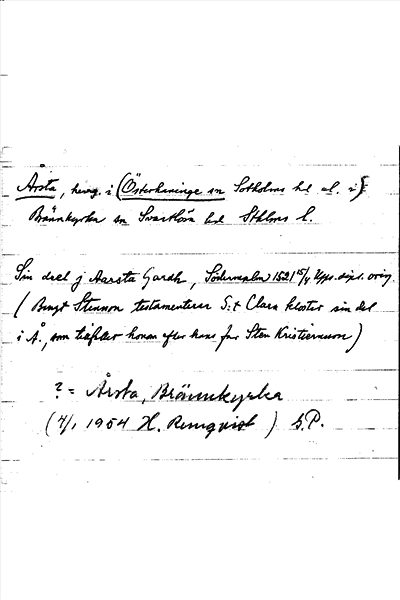 Årsta, herrg. i (Österhaninge sn Sotholms hd el. i)
Brännkyrka sn Svartlösa hd Sthlms l.
Sin deel j Aarsta Gardh, Södermalm 1521 15/4 Upps. dipl. orig.
(Bengt Stensson testamenterar S:t Clara kloster sin del
i Å., som tillfaller honom efter hans far Sten Kristiernsson)
? = Årsta, Brännkyrka
(4/1 1954 H. Rernqvist) S.P.